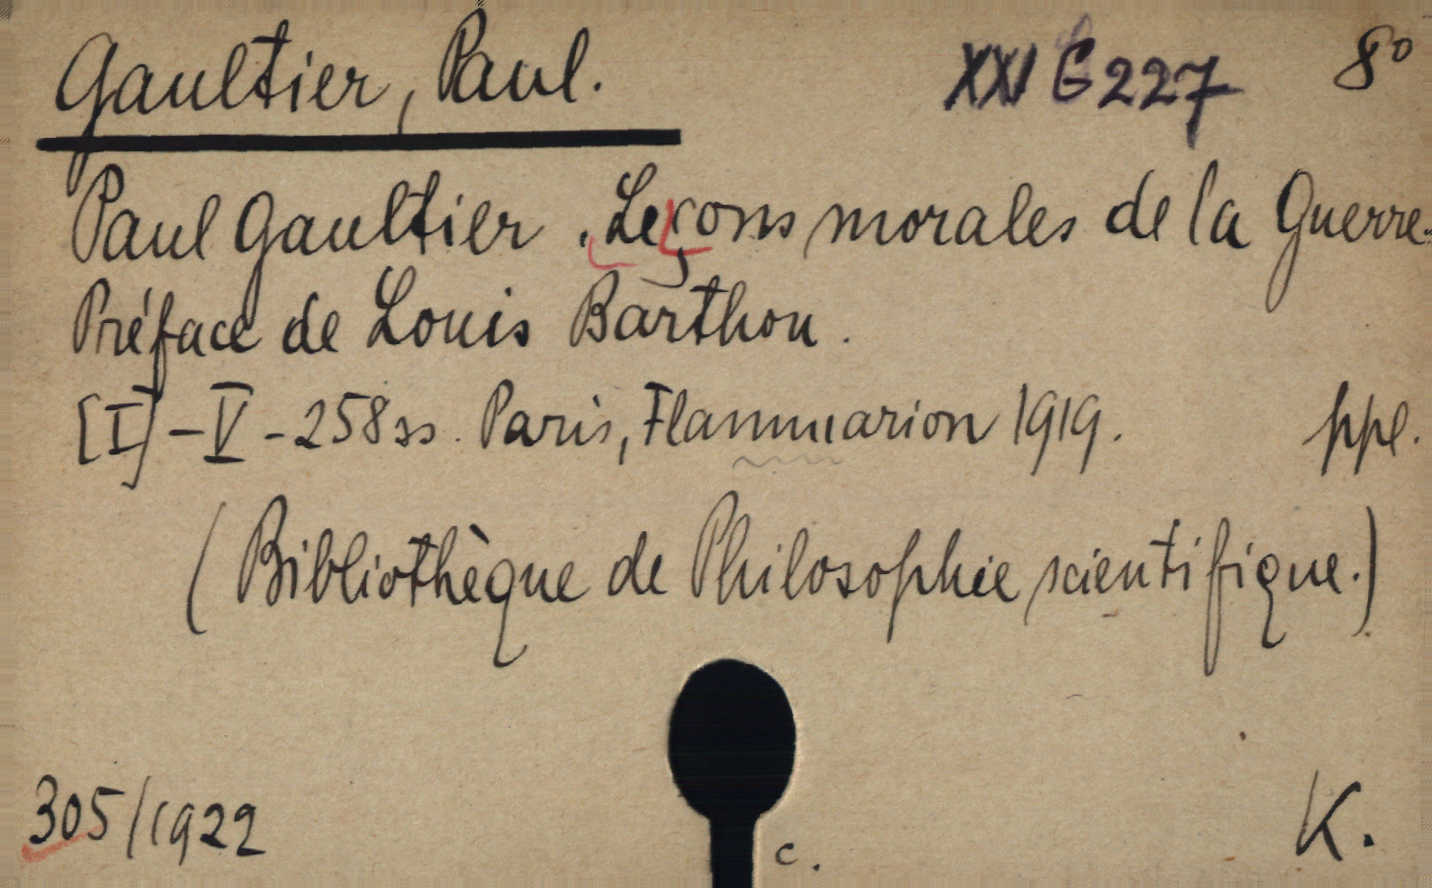 Gaultier, Paul. XXI G 227 8°
Paul Gaultier. Leçons morales de la Guerre.
Préface de Louis Barthou.
[I]-V-258 ss. Paris, Flammarion 1919. ppl.
(Bibliothèque de Philosophie scientifique.)
305/1922 K.
c.